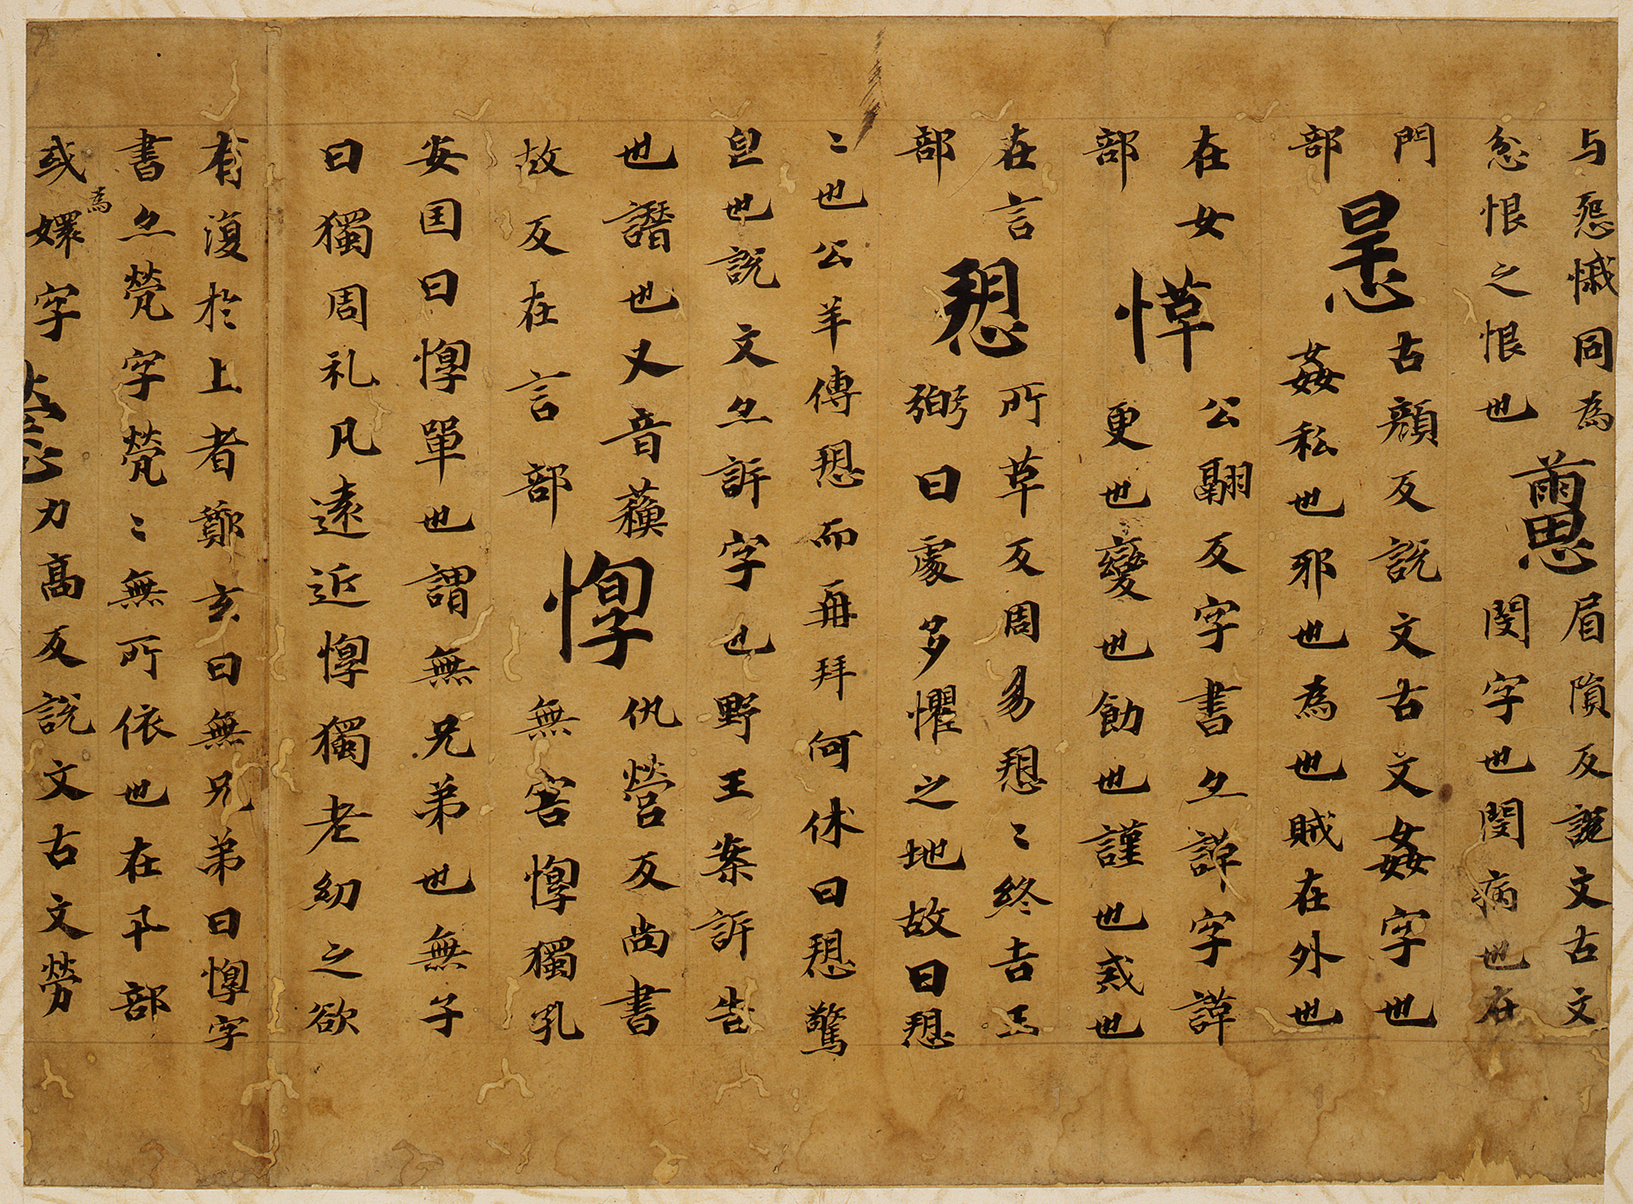 与惌慽同為
忿恨之恨也𢣗眉隕反説文古文
門閔字也閔病也在
部㤙古顔反説文古文姦字也
姦私也邪也為也賊在外也
在女
部愅公翮反字書亦諽字諽
更也變也飭也謹也或也
在言
部愬所革反周易愬〻終吉王
弼曰處多懼之地故曰愬
〻也公羊傳愬而再拜何休曰愬驚
皃也説文亦訴字也野王案訴告
也譖也又音蘓
故反在言部惸仇營反尚書
無害惸獨孔
安国曰惸單也謂無兄弟也無子
曰獨周礼凡遠近惸獨老幼之欲
有復於上者鄭玄曰無兄弟曰惸字
書亦煢字煢〻無所依也在卂部
或為嬛字 力高反説文古文勞